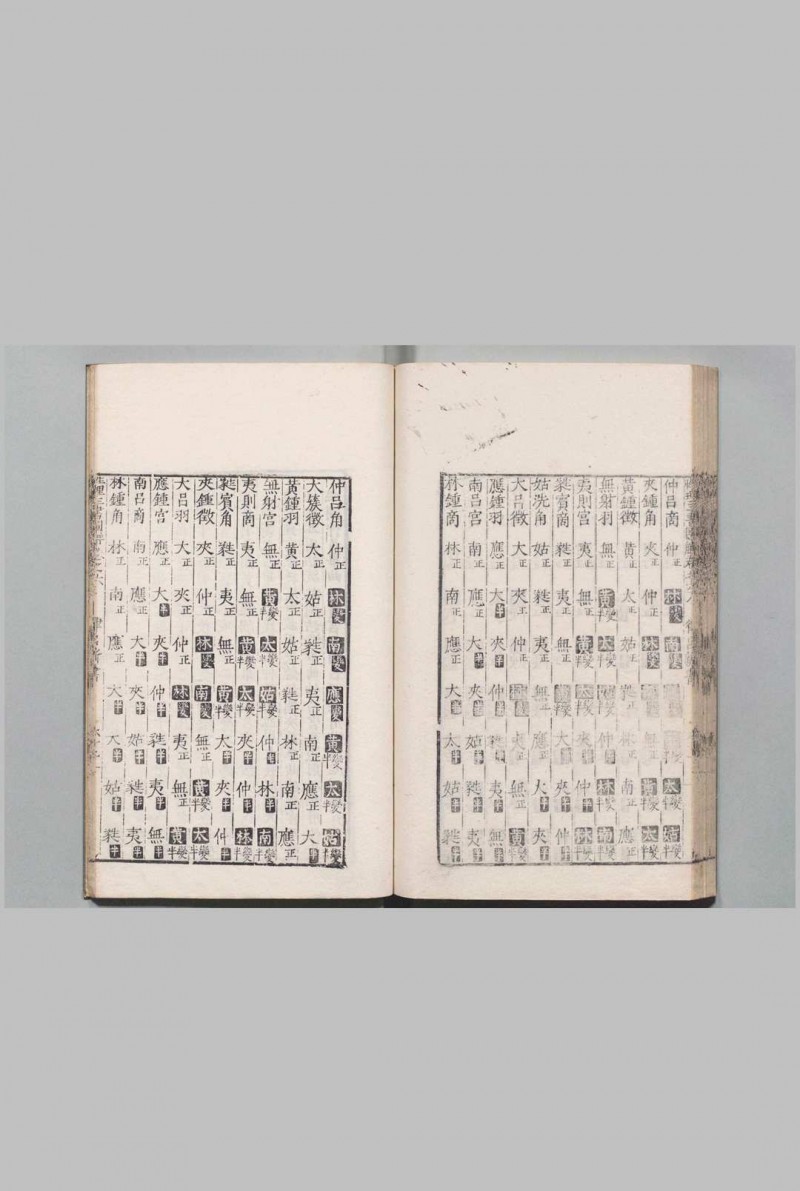 仲呂商 仲正 林變 南變 太變半 姑變半
夾鍾角 夾正 仲正 林變 黃變半 太變半
黃鍾徵 黃正 太正 姑正 蕤正 林正 南正 應正
無射羽 無正 黃變半 太變半 姑變半 仲半 林變半 南變半
夷則宮 夷正 無正 黃變半 太變半 夾半 仲半 林變半
蕤賓商 蕤正 夷正 無正 黃變半 大半 夾半 仲半
姑洗角 姑正 蕤正 夷正 無正 應正 大半 夾半
大呂徵 大正 夾正 仲正 林變 夷正 無正 黃變半
應鍾羽 應正 大半 夾半 仲半 蕤半 夷半 無半
南呂宮 南正 應正 大半 夾半 姑半 蕤半 夷半
林鍾商 林正 南正 應正 大半 太半 姑半 蕤半
仲呂角 仲正 林變 南變 應變 黃變半 太變半 姑變半
大簇徵 太正 姑正 蕤正 夷正 南正 應正 大半
黃鍾羽 黃正 太正 姑正 蕤正 林正 南正 應正
無射宮 無正 黃變半 太變半 姑變半 仲半 林變半 南變半
夷則商 夷正 無正 黃變半 太變半 夾半 仲半 林變半
蕤賓角 蕤正 夷正 無正 黃變半 大半 夾半 仲半
夾鍾徵 夾正 仲正 林變 南變 無正 黃變半 太變半
大呂羽 大正 夾正 仲正 林變 夷正 無正 黃變半
應鍾宮 應正 大半 夾半 仲半 蕤半 夷半 無半
南呂商 南正 應正 大半 夾半 姑半 蕤半 夷半
林鍾角 林正 南正 應正 大半 太半 姑半 蕤半